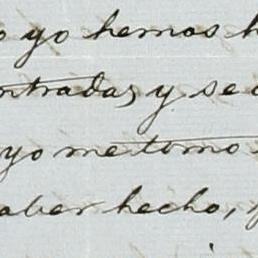 o yo hemos h
ntradas, y se
yo me tomo
aber hecho,